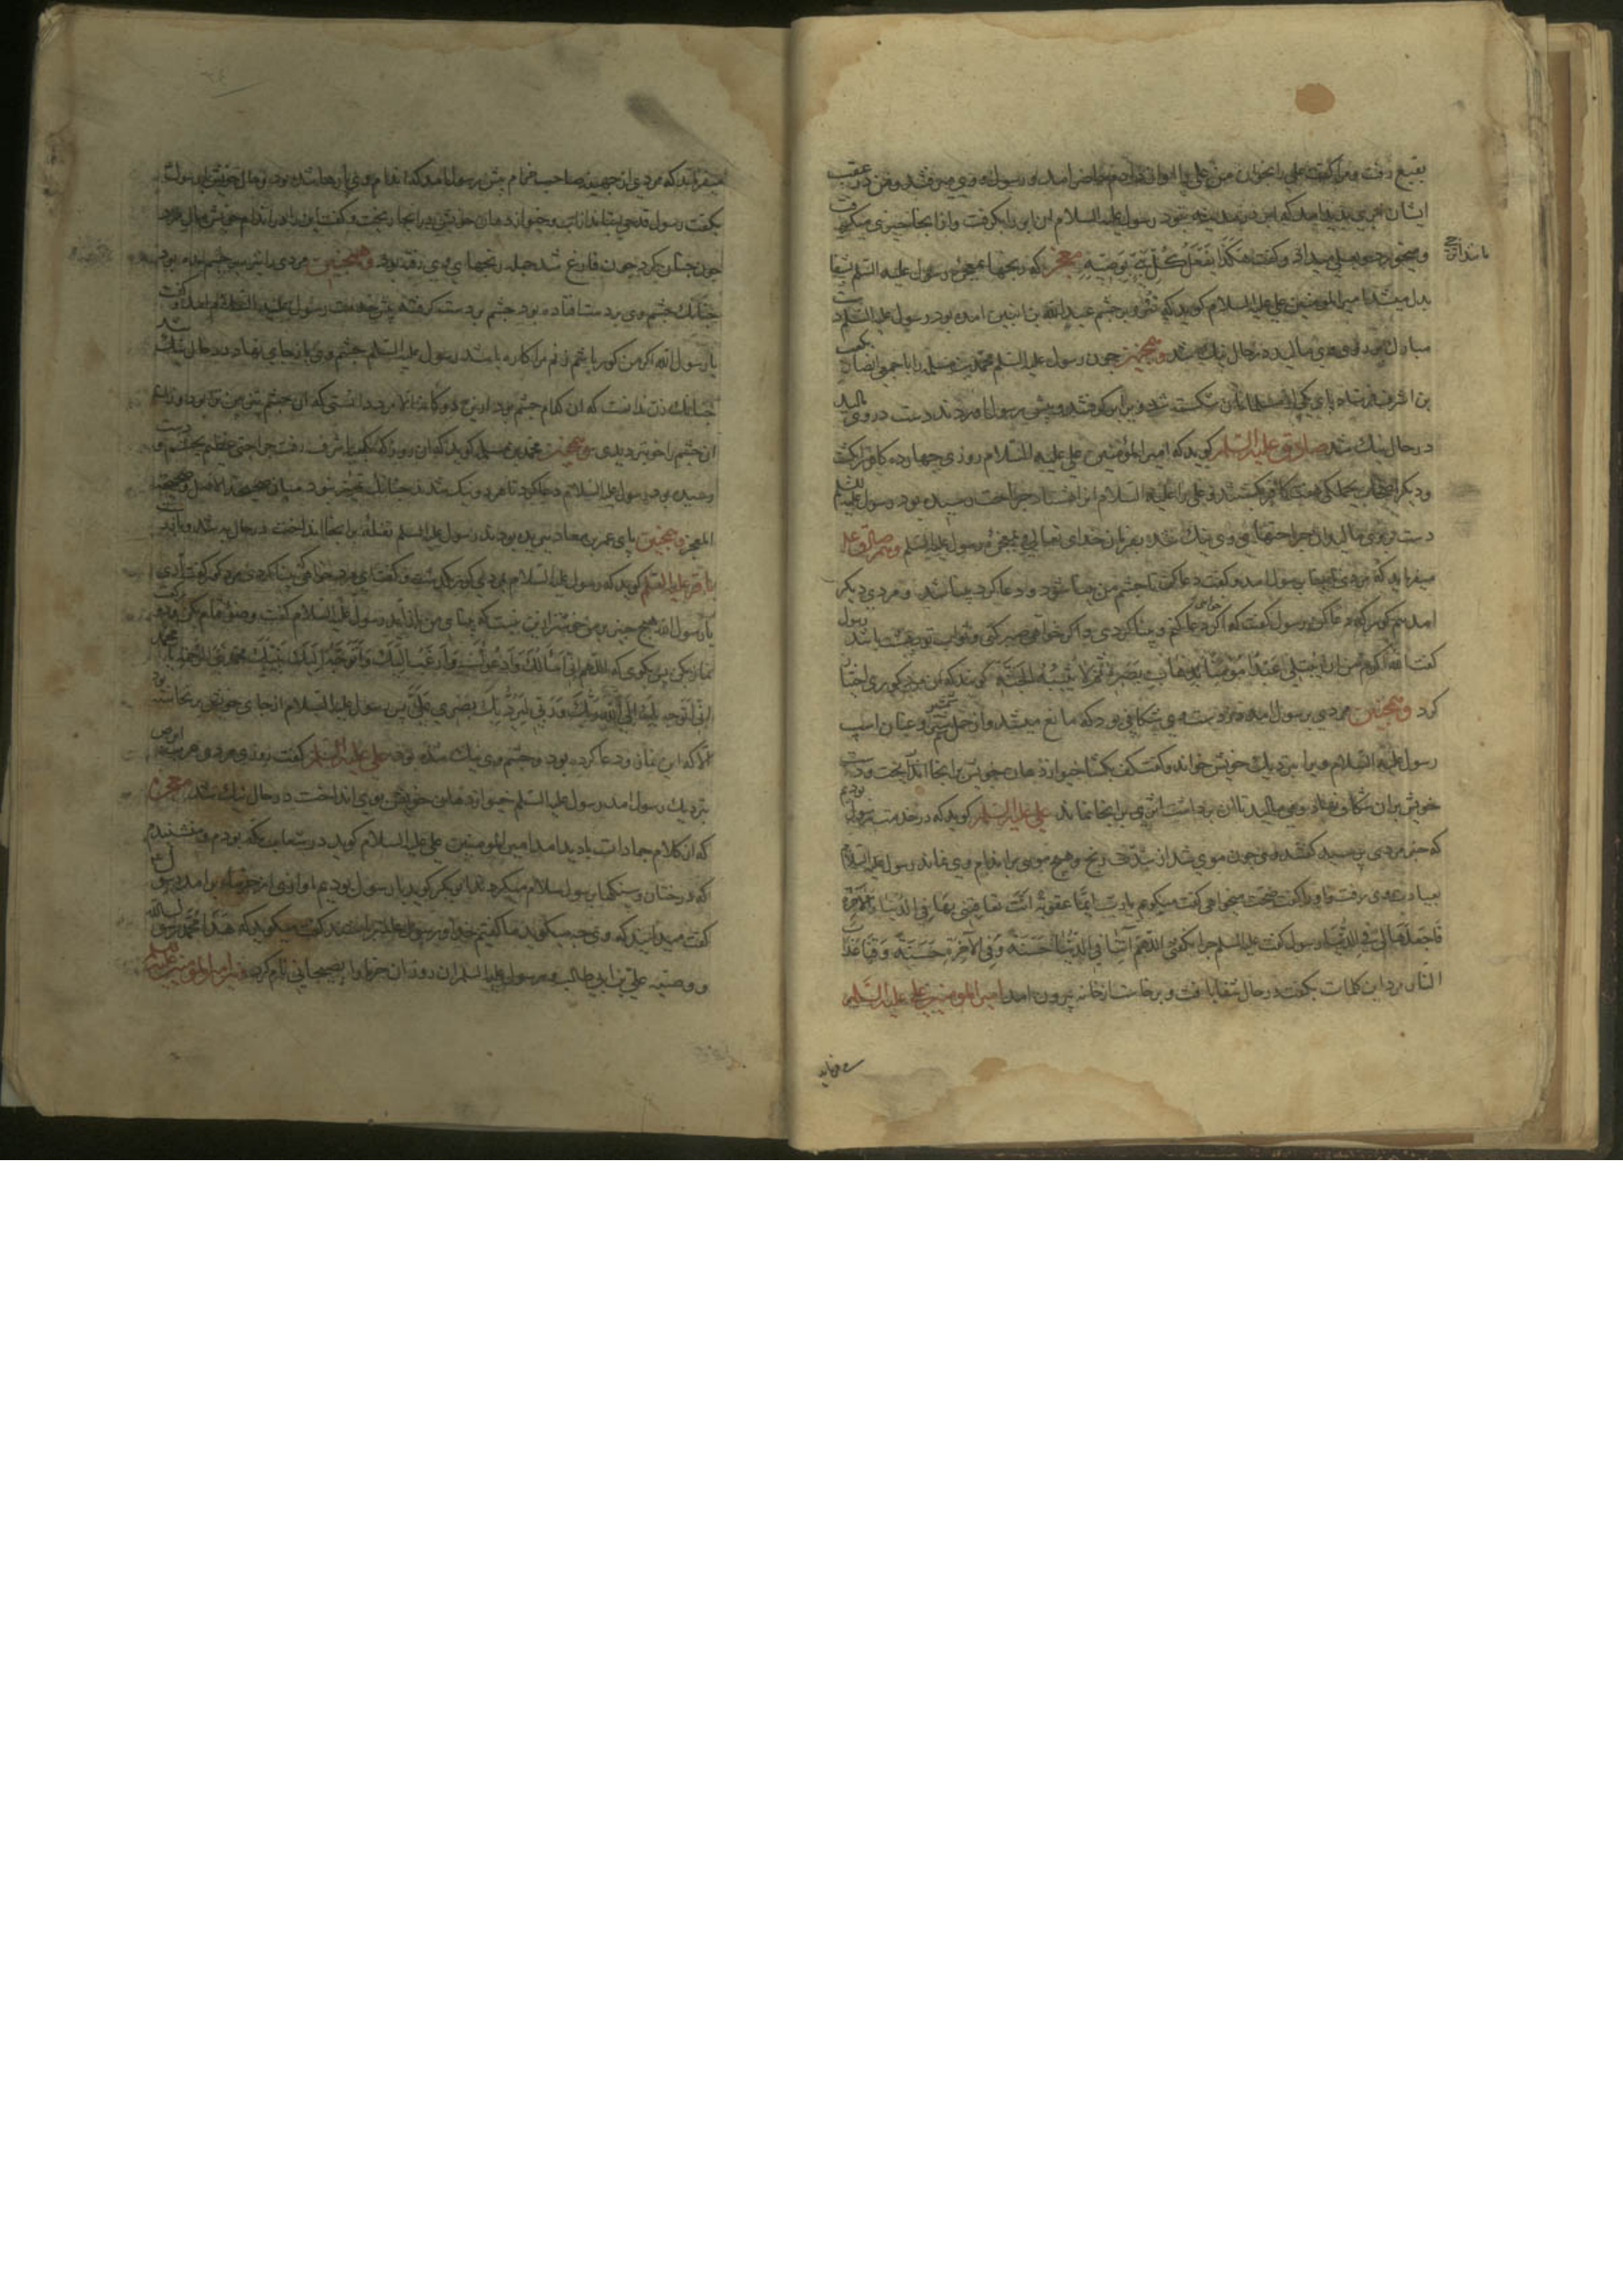 بقیع رفت و مرا گفت علی را بخوان من علی را حاضر امد و رسول و وی میرفتند و من در عقب
ایشان ابری پدید امد که رسول علیه السلام ان ابر را بگرفت و از انجا چیزی میگرفت
و میخورد و بعلی میداد و گفت هکذا یفعل کل نبی بوصیه معجز که رنجها بمعجزه رسول علیه السلم بشفا
مانند اترج
بدل میشد امیر المومنین علی علیه السلام کوید که بر چشم عبد الله بن انیس امده بود رسول علیه السلم دست
مبارک بروی می مالید در حال نیک شد و همچنین چون رسول علیه السلم محمد بن مسلمه را با جمعی انصار بکعب
بن اشرف فرستاد پای یکی از شکسته شد ویرا برگرفتند و پیش رسول اوردند دست در وی مالید
در حال نیک شد صادق علیه السلم کوید که امیر المؤمنین علی علیه السلام روزی چهارده کافر را بکشت
و دیگر هفت کافر بکشتند و علی را علیه السلام جراحت رسیده بود رسول علیه السلم
دست بروی مالید ان جراحتها وی نیک شد بفرمان خدای تعالی و معجزه رسول علیه السلم و هم صادق علیه
میفرماید که مردی نابینا برسول امد و گفت دعا کن تا چشم من بینا شود و دعا کرد بینا شد و مردی دیگر
امد هم کور که دعا کن رسول گفت که اگر خواهی دعا کنم و بینا کردی و اگر خواهی صبر کنی و ثواب تو بهشت باشد رسول
گفت الله اکرم من ان یبتلی عبدا مؤمنا بذهاب بصره ثم لا یثیبه الجنة کویند که این مرد کوری اختیار
کرد و همچنین مردی برسول امد و در دست وی شکافی بود که مانع میشد و از حمل شمشیر و عنان اسب
رسول علیه السلام ویرا نزدیک خویش خواند و گفت کف بکشا خیو از دهان خویش بر انجا انداخت و دست
خویش بران شکاف نهاد و می مالید تا ان برداشت اثری بر انجا نماند علی علیه السلم کوید که در خدمت رسول بودم
که خبر مردی پرسید گفتند وی چون موی شد از شدت رنج و هیچ موی بر اندام وی نماند رسول علیه السلام
بعیادت وی رفت و او را گفت صحت میخواهی گفت میکویم یا رب ایما عقوبة انت معاقبنی بها فی الدنیا و الآخرة
فاجعلها لی فی الدنیا رسول گفت علیه السلم چرا نگفتی اللهم آتنا فی الدنیا حسنة و فی الآخرة حسنة و قنا عذاب
النار مرد این کلمات بگفت در حال شفا یافت و برخاست از خانه بیرون امد امیر المومنین علی علیه السلم
می فرماید
میفرماید که مردی از جهینه صاحب جذام پیش رسول امد که اندام وی پارها شده بود و حال خویش با رسول
بگفت رسول قدحی بستاند از اب و خیو از دهان خویش در انجا ریخت و گفت این را در اندام خویش مال مرد
چون چنان کرد چون فارغ شد جمله رنجهای وی رفته بود و همچنین مردی را تیر بر چشم امده بود
چنانک چشم وی بر دست افتاده بود چشم بر دست گرفته پیش خدمت رسول علیه السلام امد و گفت
یا رسول الله اگر من کور باشم زنم مرا کاره باشد رسول علیه السلم چشم وی باز جای نهاد در حال نیک شد
چنانک زن ندانست که ان کدام چشم بود
ان چشم را خوبتر دیدی و همچنین محمد بن مسلمه کوید که ان روز که بکعب اشرف رفت جراحتی عظیم بچشم و دست
رسیده بود رسول علیه السلام دعا کرد تا هر دو نیک شدند چنانک تمیز نبود میان صحیح الاصل و صحیح
المعجز و همچنین پای عمر بن معاذ بریده بودند رسول علیه السلم تفله بر انجا انداخت در حال به شد و باقر
باقر علیه السلم کوید که رسول علیه السلام بمردی کور بگذشت و گفت ای مرد خواهی بینا کردی مرد کور گفت آری
یا رسول الله هیچ چیز بر من خوشتر ازین نیست که بینائی من باز اید رسول علیه السلام گفت وضوء تمام بکن و دو رکعت
نماز بکن پس بگوی که اللهم انی اسألک و ادعوک و ارغب الیک و اتوجه الیک بنبیک محمد نبی الرحمة یا محمد
انی اتوجه بک الی الله ربک و ربی لیرد بک بصری علی پس رسول علیه السلام از جای خویش برنخاسته بود
الا که این نماز و دعا کرده بود و چشم وی نیک شده بود علی علیه السلم گفت روزی مردی ابرص
نزدیک رسول امد رسول علیه السلم خیو از دهان خویش بروی انداخت در حال نیک شد معجز
که از کلام جمادات بادید امد امیر المومنین علی علیه السلام کوید در شعاب مکه بودم و می شنیدم
که درختان و سنگها بر رسول سلام میکردند با رسول بودیم اوازی از خرما بر امد رسول
گفت میدانید که وی چه میکوید ما گفتیم خدا و رسول علیه السلم گفت میکوید که هذا محمد رسول الله
و وصیه علی بن ابی طالب رسول علیه السلم ان روز ان خرما را صیحانی نام کرد امیر المومنین علیه السلم